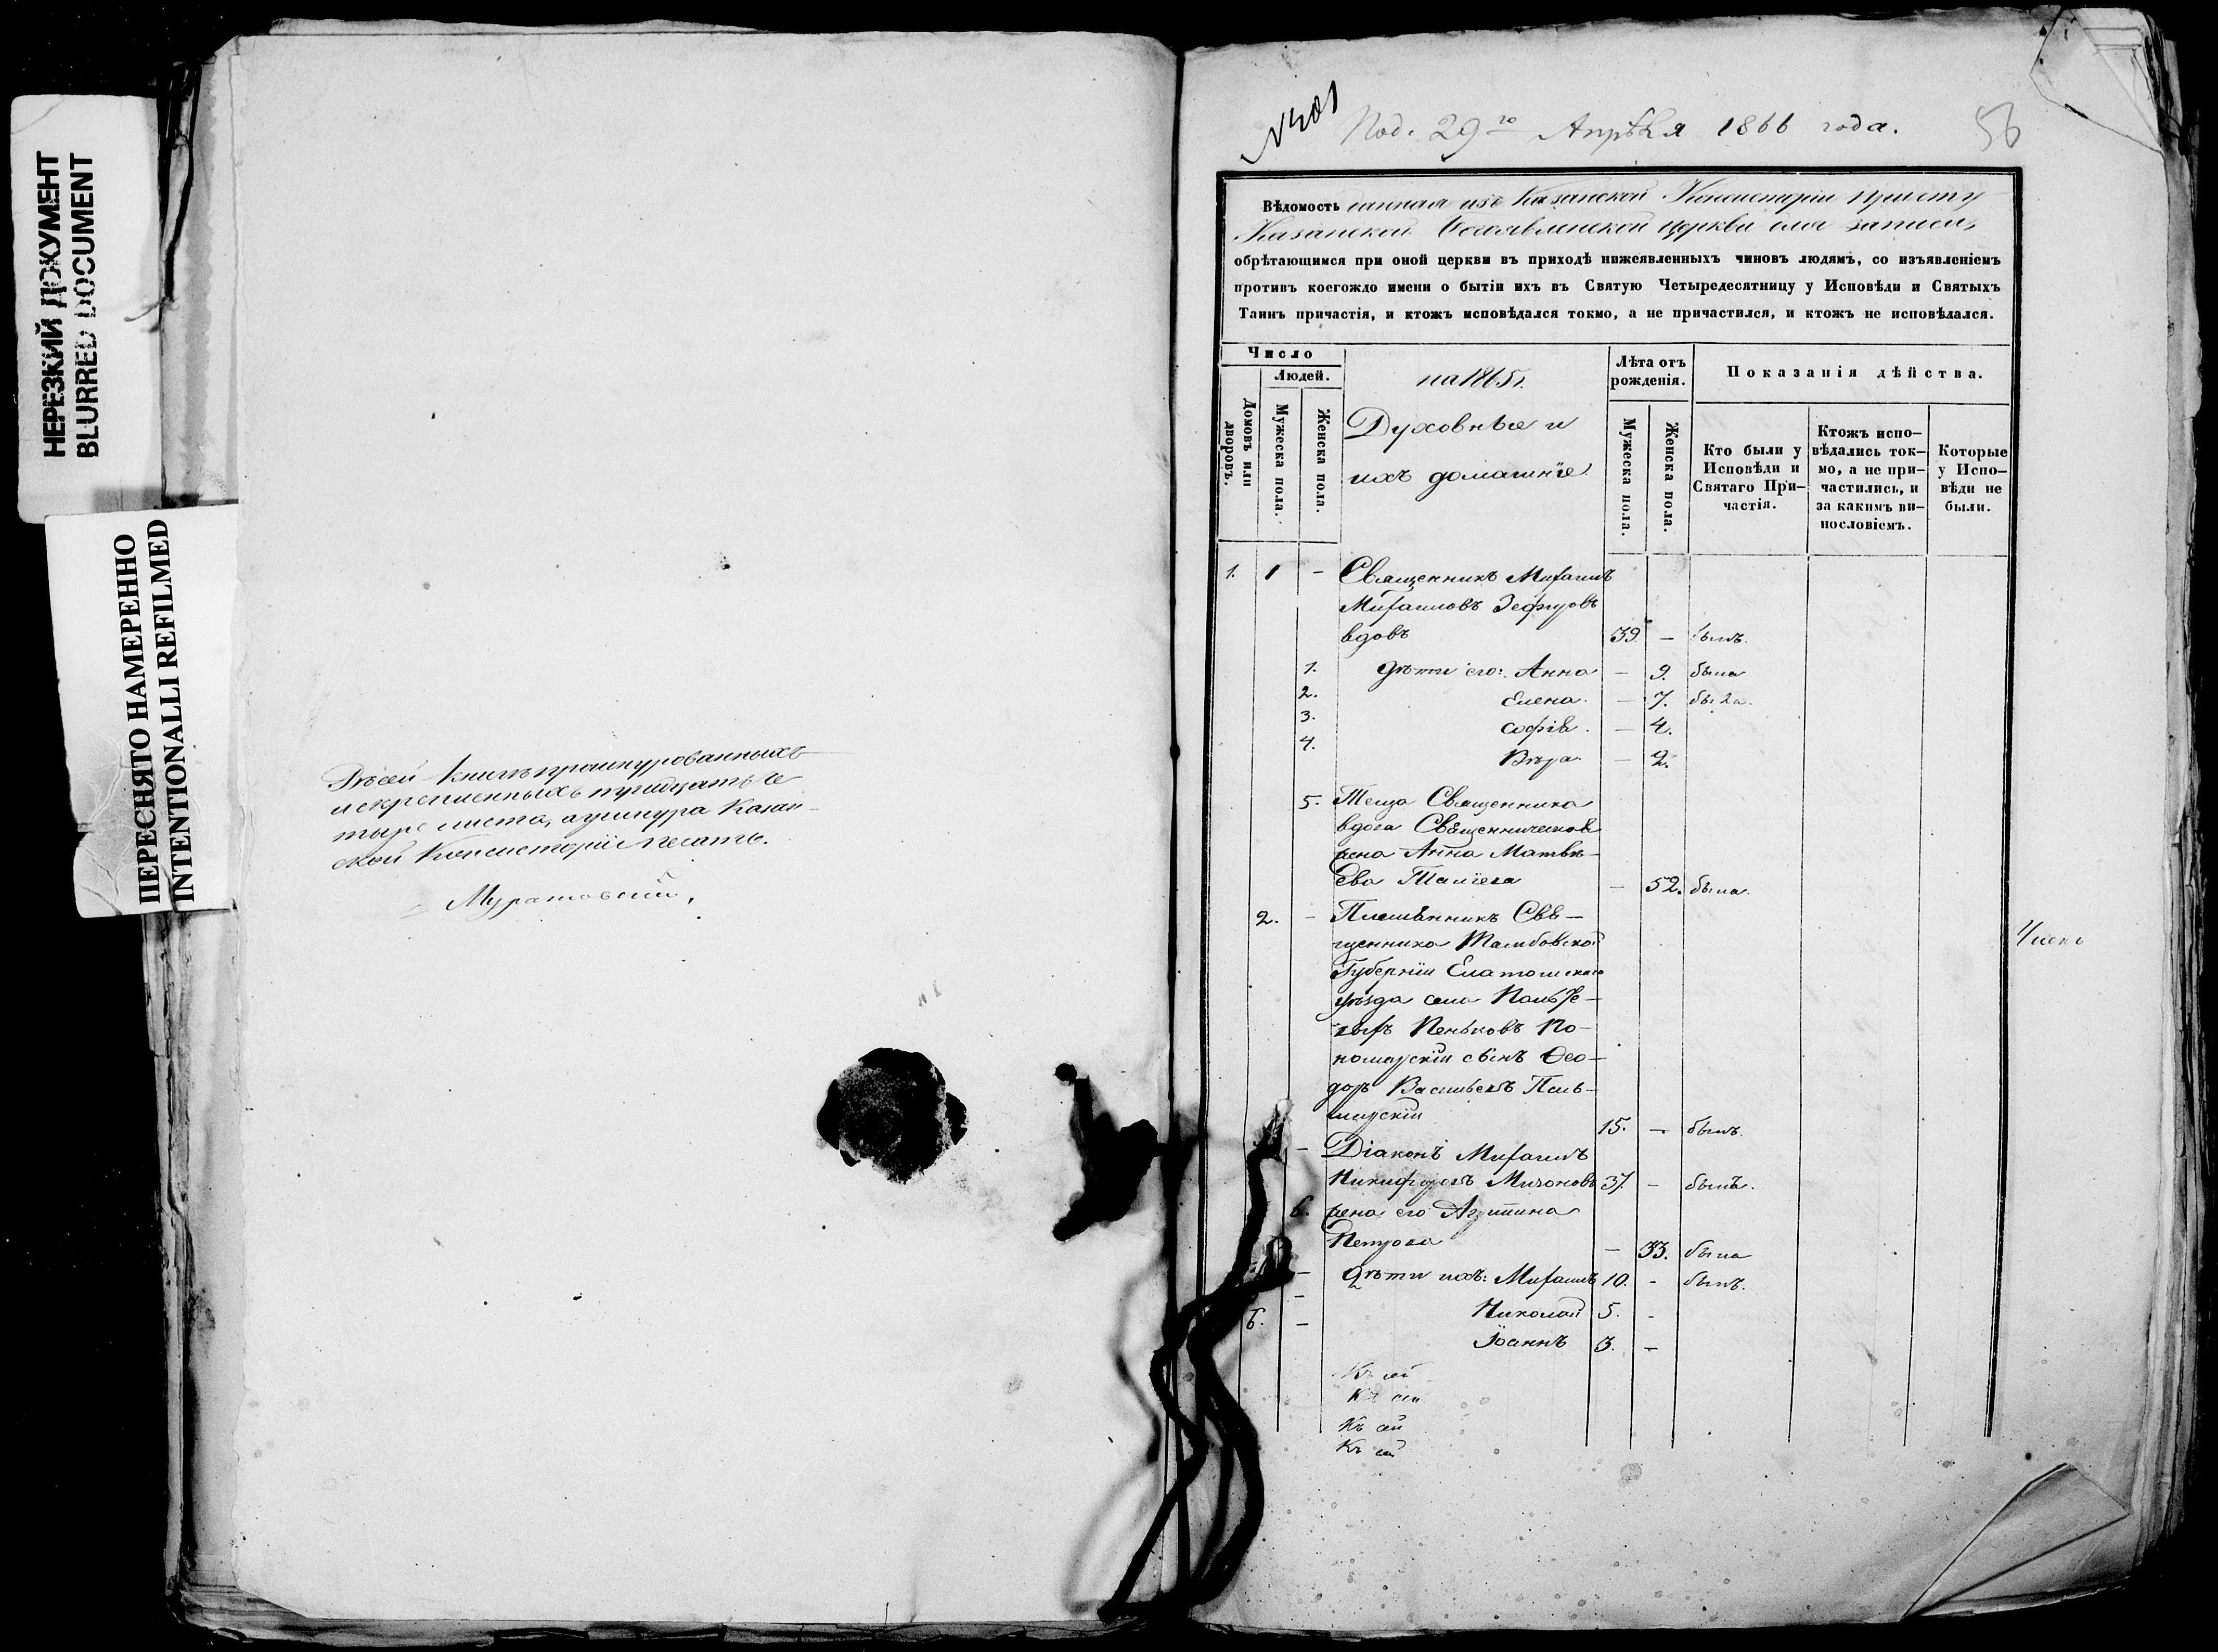 НЕРЕЗКИЙ ДОКУМЕНТ
BLURRED DOCUMENT
ПЕРЕСНЯТО НАМЕРЕННО
INTENTIONALLI REFILMED
Въ сей книгѣ прошнурованныхъ
и скрепленныхъ тридцать че
тыре листа, а у шнура Казан-
ской Консисторіи печать.
Муратовскій.
№ 301
Под. 29го Апрѣля 1866 года.
56
Вѣдомость данная изъ Казанской Консисторіи причту
Казанской Богоявленской церкви для записи,
обрѣтающимся при оной церкви въ приходѣ нижеявленныхъ чиновъ людямъ, со изъявленіемъ
противъ коегождо имени о бытіи ихъ въ Святую Четыредесятницу у Исповѣди и Святыхъ
Таинъ причастія, и ктожъ исповѣдался токмо, а не причастился, и ктожъ не исповѣдался.
Число
Людей.
Домовъ или дворовъ.
Мужеска пола.
Женска пола.
на 1865 г.
Духовные и
ихъ домашніе
Лѣта отъ рожденія.
Мужеска пола.
Женска пола.
Показанія дѣйства.
Кто были у Исповѣди и Святаго При-частія.
Ктожъ испо-вѣдались ток-мо, а не при-частились, и за какимъ ви-нословіемъ.
Которые у Испо-вѣди не были.
1. 1 - Священникъ Михаилъ
Михаиловъ Зефировъ
вдовъ 39 - былъ.
1. дѣти его: Анна - 9. была
2. Елена - 7. была.
3. Софія - 4.
4. Вѣра - 2.
5. Теща Священника
вдова Священническая
жена Анна Матвѣ-
ева - 52. была.
2. - Племянникъ Свя-
щенника Тамбовской
Губерніи Елатомскаго
уѣзда села
Пеньковъ По-
номарскій сынъ Ѳео-
доръ Васильевъ Паль-
мирскій 15. - былъ.
- Діаконъ Михаилъ
Никифоровъ 37. - былъ.
6. жена его
Петрова - 33. была
- дѣти ихъ: Михаилъ 10. - былъ.
- Николай 5. -
6. - Іоаннъ 3. -
Къ сей
Къ сей
Къ сей
Къ сей